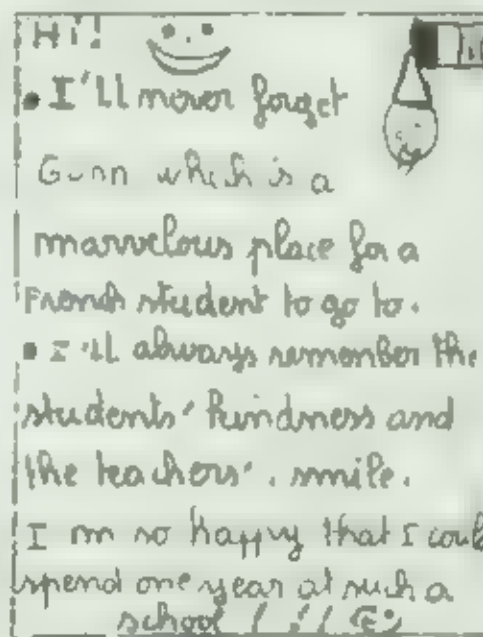 Hi!
• I'll never forget
Gunn which is a
marvelous place for a
French student to go to.
• I'll always remember the
students' kindness and
the teachers' smile.
I'm so happy that I could
spend one year at such a
school ! ! !